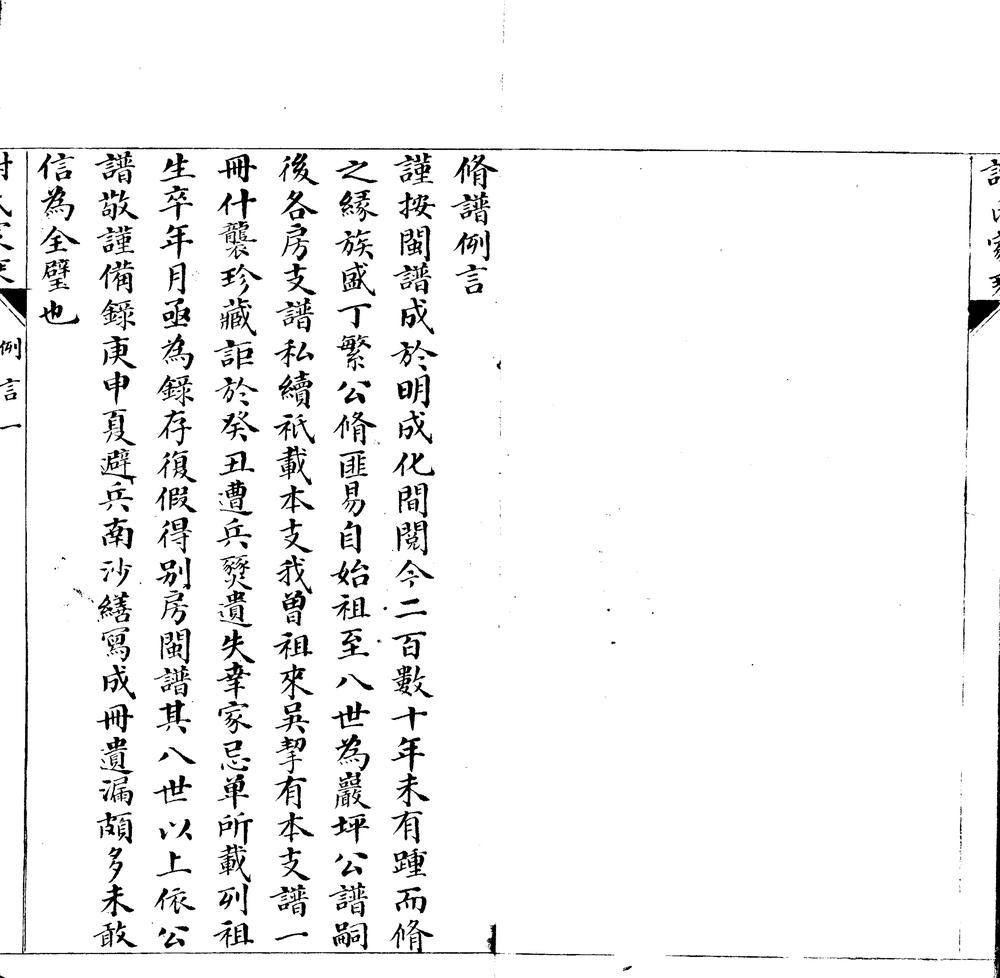 脩譜例言
謹按閩譜成於明成化間閱今二百數十年未有踵而脩
之緣族盛丁繁公脩匪易自始祖至八世為巖坪公譜嗣
後各房支譜私續祇載本支我曾祖來吳挈有本支譜一
冊什襲珍藏詎於癸丑遭兵燹遺失幸家忌单所載列祖
生卒年月亟為錄存復假得別房閩譜其八世以上依公
譜敬謹備錄庚申夏避兵南沙繕寫成冊遺漏頗多未敢
信為全璧也
例言一